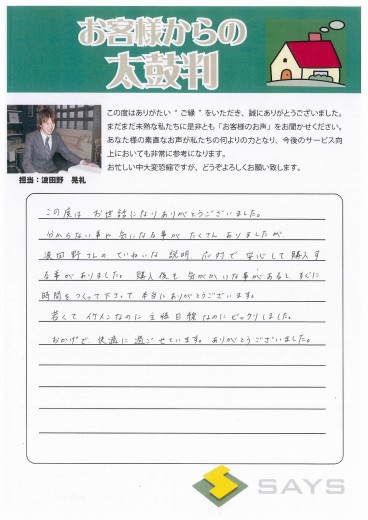 お客様からの
太鼓判
この度はありがたい“ご縁”をいただき、誠にありがとうございました。
まだまだ未熟な私たちに是非とも「お客様のお声」をお聞かせください。
あなた様の素直なお声が私たちの何よりの力となり、今後のサービス向
上においても非常に参考になります。
お忙しい中大変恐縮ですが、どうぞよろしくお願い致します。
担当：波田野 晃礼
この度は お世話になりありがとうございました。
分からない事や気になる事がたくさんありましたが
波田野さんの ていねいな 説明、応対で 安心して購入す
る事がありました。購入後も 分からない事があると、すぐに
時間をつくって下さって 本当にありがとうございます。
若くて イケメンなのに 主任日程なのにビックリしました。
おかげで 快適に過ごせています。ありがとうございました。
SAYS